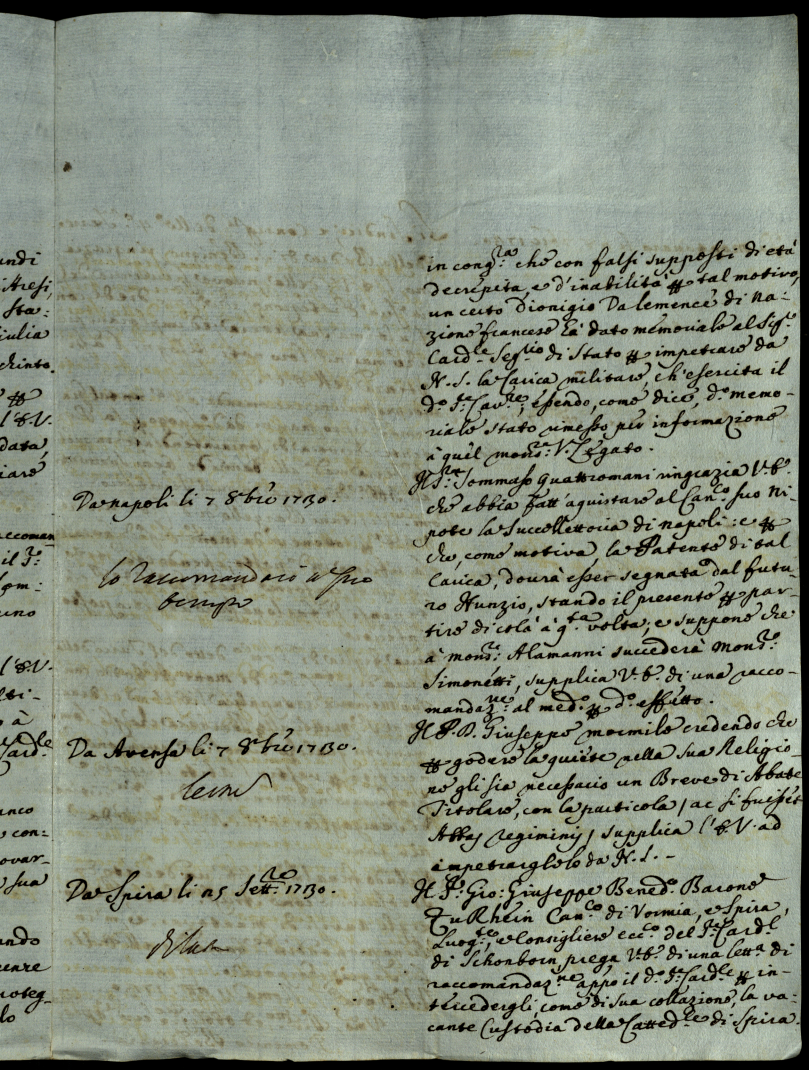 undi
Atresi,
Sta:
iulia
chinto.
l'E.V.
data,
ciare
accoman
il Sr.
uno
l'E.V.
à
Card.le
anco
con:
ovar-
sua
ando
proteg-
lo
in cong.ra che con falsi supposti di età
decrepita, e d'inabilità ꝑ tal motivo,
un certo Dionigio Dalemence di na-
zione francese hà dato memoriale al Sig.r
Card.le Seg.rio di Stato ꝑ impetrare da
N. S. la Carica militare, ch'esercita il
d.o S.r Cav.re; essendo, come dice, d.o memo-
riale stato rimesso per informazione
à quel mons.r V. Legato.
Da napoli li 7 8bre 1730.
Il S.r Tommaso Quattromani ringrazia V.E.
che abbia fatt'aquistare al Can.co suo ni-
pote la Succollettoria di napoli: e ꝑ
che, come motiva, la Patente di tal
Carica, dourà esser segnata dal futu-
ro Nunzio, stando il presente ꝑ par-
tire di colà à q.ta volta; e suppone che
à mons.r Alamanni succederà Mons.r
Simonetti, supplica V.E. di una racco-
mandaz.ne al med.o ꝑ d.o effetto.
lo raccomandarò a suo
tempo
Da Aversa li 7 8bre 1730.
Il P. D. Giuseppe mormile credendo che
ꝑ godere la quiete nella sua Religio-
ne gli sia necessario un Breve di Abate
Titolare, con la particola / ac si fuisset
Abbas regiminis / supplica l'E.V. ad
impetrarglelo da N. S. -
Da Spira li 25 Sett.re 1730.
Il S.r Gio: Giuseppe Bened.o Barone
Zu Rhein Can.co di Vormia, e Spira,
Luog.te, e Consigliere ecc.o del S.r Card.l
di Schonborn prega V.E. di una lett.a di
raccomandaz.ne appo il d.o S.r Card.le ꝑ in-
tercedergli, come di sua collazione, la va-
cante Custodia della Catted.le di Spira.